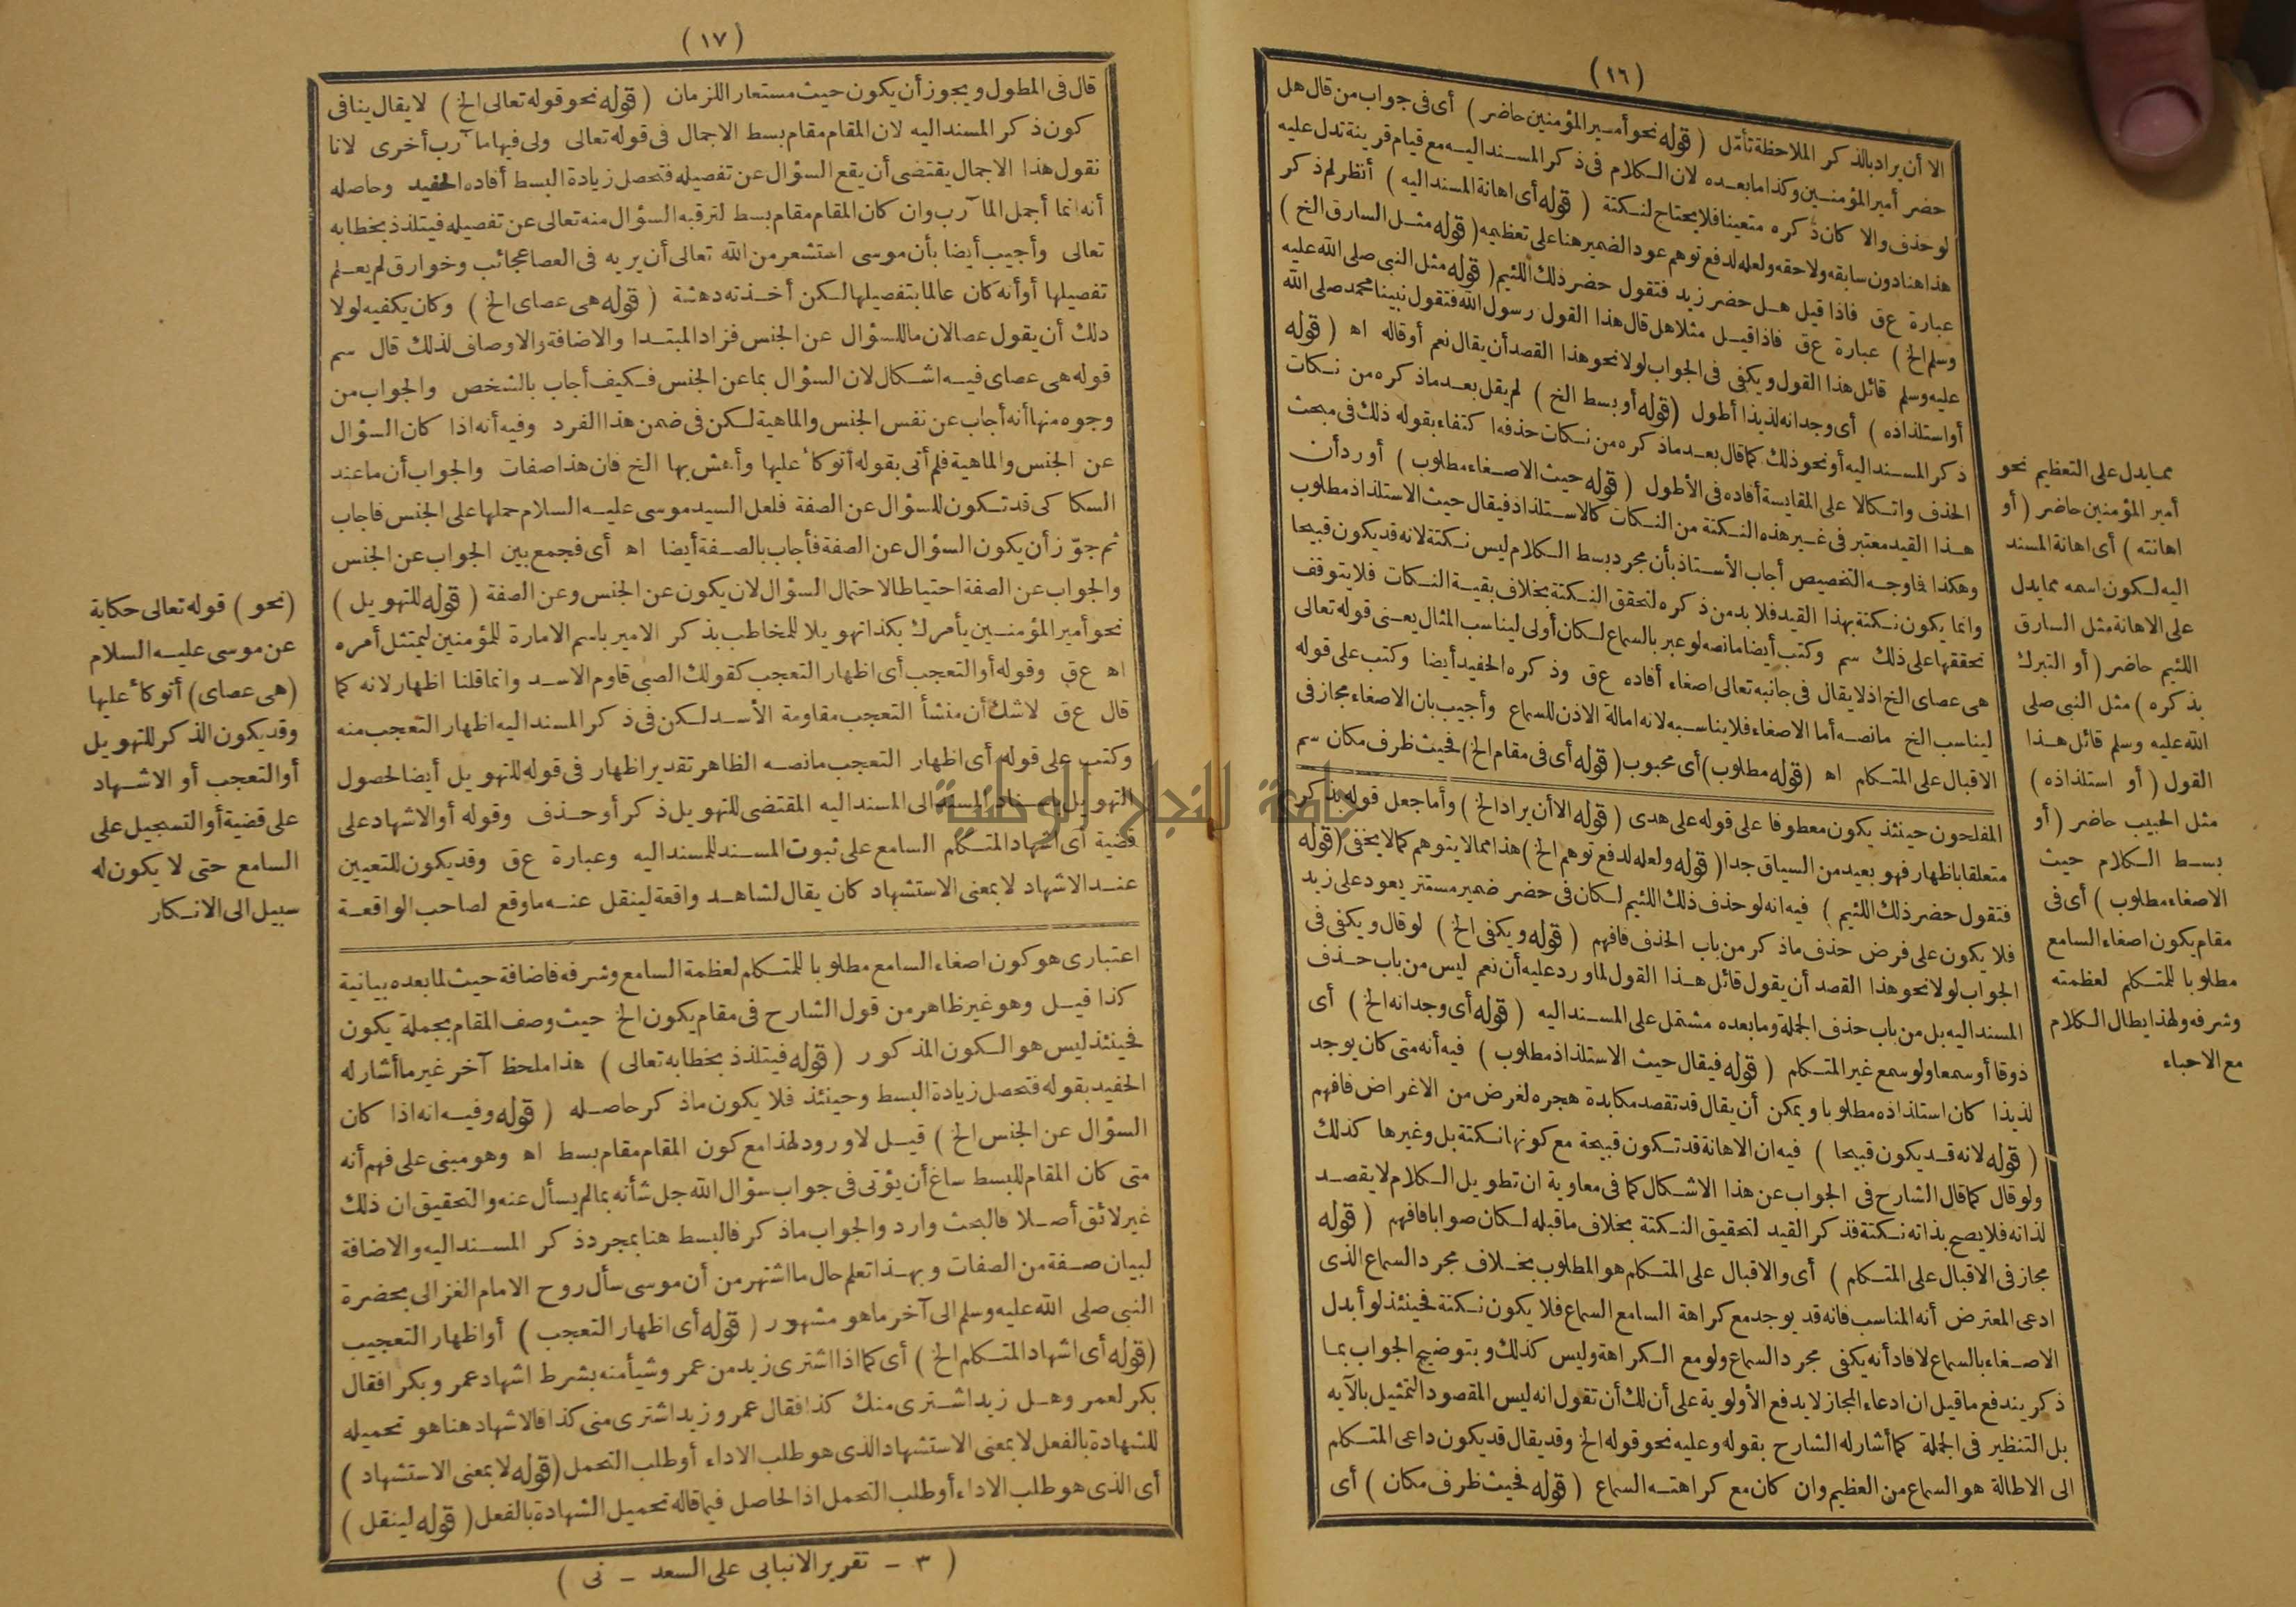 (١٦)
الا أن يراد بالذكر الملاحظة تأمّل ( قوله نحو أمير المؤمنين حاضر ) أى فى جواب من قال هل
حضر أمير المؤمنين وكذا ما بعده لان الكلام فى ذكر المسند اليه مع قيام قرينة تدل عليه
لو حذف والا كان ذكره متعينا فلا يحتاج لنكتة ( قوله أى اهانة المسند اليه ) أنظر لم ذكر
هذا هنا دون سابقه ولاحقه ولعله لدفع توهم عود الضمير هنا على تعظيمه ( قوله مثل السارق الخ )
عبارة ع ق فاذا قيل هل حضر زيد فتقول حضر ذلك اللئيم ( قوله مثل النبى صلى الله عليه
وسلم الخ ) عبارة ع ق فاذا قيل مثلا هل قال هذا القول رسول الله فتقول نبينا محمد صلى الله
عليه وسلم قائل هذا القول ويكفى فى الجواب لولا نحو هذا القصد أن يقال نعم أو قاله اه ( قوله
أو استلذاذه ) أى وجدانه لذيذا أطول ( قوله أو بسط الخ ) لم يقل بعد ما ذكره من نكات
ذكر المسند اليه أو نحو ذلك كما قال بعد ما ذكره من نكات حذفه اكتفاء بقوله ذلك فى مبحث
الحذف واتكالا على المقايسة أفاده فى الأطول ( قوله حيث الاصغاء مطلوب ) أورد أن
هذا القيد معتبر فى غير هذه النكتة من النكات كالاستلذاذ فيقال حيث الاستلذاذ مطلوب
وهكذا فما وجه التخصيص أجاب الأستاذ بأن مجرد بسط الكلام ليس نكتة لانه قد يكون قبيحا
وانما يكون نكتة بهذا القيد فلا بد من ذكره لتحقق النكتة بخلاف بقية النكات فلا يتوقف
تحققها على ذلك سم وكتب أيضا ما نصه لو عبر بالسماع لكان أولى ليناسب المثال يعنى قوله تعالى
هى عصاى الخ اذ لا يقال فى جانبه تعالى اصغاء أفاده ع ق وذكره الحفيد أيضا وكتب على قوله
ليناسب الخ ما نصه أما الاصغاء فلا يناسبه لانه امالة الاذن للسماع وأجيب بان الاصغاء مجاز فى
الاقبال على المتكلم اه ( قوله مطلوب ) أى محبوب ( قوله أى فى مقام الخ ) فحيث ظرف مكان سم
المفلحون حينئذ يكون معطوفا على قوله على هدى ( قوله الا أن يراد الخ ) وأما جعل قوله بذكر
متعلقا باظهار فهو بعيد من السياق جدا ( قوله ولعله لدفع توهم الخ ) هذا مما لا يتوهم كما لا يخفى ( قوله
فتقول حضر ذلك اللئيم ) فيه انه لو حذف ذلك اللئيم لكان فى حضر ضمير مستتر يعود على زيد
فلا يكون على فرض حذف ما ذكر من باب الحذف فافهم ( قوله ويكفى الخ ) لو قال ويكفى فى
الجواب لولا نحو هذا القصد أن يقول قائل هذا القول لما ورد عليه أن نعم ليس من باب حذف
المسند اليه بل من باب حذف الجملة وما بعده مشتمل على المسند اليه ( قوله أى وجدانه الخ ) أى
ذوقا أو سمعا ولو سمع غير المتكلم ( قوله فيقال حيث الاستلذاذ مطلوب ) فيه أنه متى كان يوجد
لذيذا كان استلذاذه مطلوبا ويمكن أن يقال قد تقصد مكابدة هجره لغرض من الاغراض فافهم
( قوله لانه قد يكون قبيحا ) فيه ان الاهانة قد تكون قبيحة مع كونها نكتة بل وغيرها كذلك
ولو قال كما قال الشارح فى الجواب عن هذا الاشكال كما فى معاوية ان تطويل الكلام لا يقصد
لذاته فلا يصح بذاته نكتة فذكر القيد لتحقيق النكتة بخلاف ما قبله لكان صوابا فافهم ( قوله
مجاز فى الاقبال على المتكلم ) أى والاقبال على المتكلم هو المطلوب بخلاف مجرد السماع الذى
ادعى المعترض أنه المناسب فانه قد يوجد مع كراهة السامع السماع فلا يكون نكتة فحينئذ لو أبدل
الاصغاء بالسماع لافاد أنه يكفى مجرد السماع ولو مع الكراهة وليس كذلك وبتوضيح الجواب بما
ذكر يندفع ما قيل ان ادعاء المجاز لا يدفع الأولوية على أن لك أن تقول انه ليس المقصود التمثيل بالآية
بل التنظير فى الجملة كما أشار له الشارح بقوله وعليه نحو قوله الخ وقد يقال قد يكون داعى المتكلم
الى الاطالة هو السماع من العظيم وان كان مع كراهته السماع ( قوله فحيث ظرف مكان ) أى
مما يدل على التعظيم نحو
أمير المؤمنين حاضر ( أو
اهانته ) أى اهانة المسند
اليه لكون اسمه مما يدل
على الاهانة مثل السارق
اللئيم حاضر ( أو التبرك
بذكره ) مثل النبى صلى
الله عليه وسلم قائل هذا
القول ( أو استلذاذه )
مثل الحبيب حاضر ( أو
بسط الكلام حيث
الاصغاء مطلوب ) أى فى
مقام يكون اصغاء السامع
مطلوبا للمتكلم لعظمته
وشرفه ولهذا يطال الكلام
مع الاحباء
(١٧)
قال فى المطول ويجوز أن يكون حيث مستعارا للزمان ( قوله نحو قوله تعالى الخ ) لا يقال ينافى
كون ذكر المسند اليه لان المقام مقام بسط الاجمال فى قوله تعالى ولى فيها مآرب أخرى لانا
نقول هذا الاجمال يقتضى أن يقع السؤال عن تفصيله فتحصل زيادة البسط أفاده الحفيد وحاصله
أنه انما أجمل المآرب وان كان المقام مقام بسط لترقبه السؤال منه تعالى عن تفصيله فيتلذذ بخطابه
تعالى وأجيب أيضا بأن موسى استشعر من الله تعالى أن يريه فى العصا عجائب وخوارق لم يعلم
تفصيلها أو أنه كان عالما بتفصيلها لكن أخذته دهشة ( قوله هى عصاى الخ ) وكان يكفيه لولا
ذلك أن يقول عصا لان ما للسؤال عن الجنس فزاد المبتدا والاضافة والاوصاف لذلك قال سم
قوله هى عصاى فيه اشكال لان السؤال بما عن الجنس فكيف أجاب بالشخص والجواب من
وجوه منها أنه أجاب عن نفس الجنس والماهية لكن فى ضمن هذا الفرد وفيه أنه اذا كان السؤال
عن الجنس والماهية فلم أتى بقوله أتوكأ عليها وأهش بها الخ فان هذا صفات والجواب أن ما عند
السكاكى قد تكون للسؤال عن الصفة فلعل السيد موسى عليه السلام حملها على الجنس فاجاب
ثم جوّز أن يكون السؤال عن الصفة فأجاب بالصفة أيضا اه أى فجمع بين الجواب عن الجنس
والجواب عن الصفة احتياطا لاحتمال السؤال لان يكون عن الجنس وعن الصفة ( قوله للتهويل )
نحو أمير المؤمنين يأمرك بكذا تهويلا للمخاطب بذكر الامير باسم الامارة للمؤمنين ليمتثل أمره
اه ع ق وقوله أو التعجب أى اظهار التعجب كقولك الصبى قاوم الاسد وانما قلنا اظهار لانه كما
قال ع ق لاشك أن منشأ التعجب مقاومة الأسد لكن فى ذكر المسند اليه اظهار التعجب منه
وكتب على قوله أى اظهار التعجب ما نصه الظاهر تقدير اظهار فى قوله للتهويل أيضا لحصول
التهويل باسناد المسند الى المسند اليه المقتضى للتهويل ذكر أو حذف وقوله أو الاشهاد على
قضية أى اشهاد المتكلم السامع على ثبوت المسند للمسند اليه وعبارة ع ق وقد يكون للتعيين
عند الاشهاد لا بمعنى الاستشهاد كان يقال لشاهد واقعة لينقل عنه ما وقع لصاحب الواقعة
اعتبارى هو كون اصغاء السامع مطلوبا للمتكلم لعظمة السامع وشرفه فاضافة حيث لما بعده بيانية
كذا قيل وهو غير ظاهر من قول الشارح فى مقام يكون الخ حيث وصف المقام بجملة يكون
فحينئذ ليس هو الكون المذكور ( قوله فيتلذذ بخطابه تعالى ) هذا ملحظ آخر غير ما أشار له
الحفيد بقوله فتحصل زيادة البسط وحينئذ فلا يكون ما ذكر حاصله ( قوله وفيه انه اذا كان
السؤال عن الجنس الخ ) قيل لا ورود لهذا مع كون المقام مقام بسط اه وهو مبنى على فهم أنه
متى كان المقام للبسط ساغ أن يؤتى فى جواب سؤال الله جل شأنه بما لم يسأل عنه والتحقيق ان ذلك
غير لائق أصلا فالبحث وارد والجواب ما ذكر فالبسط هنا بمجرد ذكر المسند اليه والاضافة
لبيان صفة من الصفات وبهذا تعلم حال ما اشتهر من أن موسى سأل روح الامام الغزالى بحضرة
النبى صلى الله عليه وسلم الى آخر ما هو مشهور ( قوله أى اظهار التعجب ) أو اظهار التعجيب
( قوله أى اشهاد المتكلم الخ ) أى كما اذا اشترى زيد من عمرو شيأ منه بشرط اشهاد عمرو بكرا فقال
بكر لعمرو هل زيد اشترى منك كذا فقال عمرو زيد اشترى منى كذا فالاشهاد هنا هو تحميله
للشهادة بالفعل لا بمعنى الاستشهاد الذى هو طلب الاداء أو طلب التحمل ( قوله لا بمعنى الاستشهاد )
أى الذى هو طلب الاداء أو طلب التحمل اذ الحاصل فيما قاله تحميل الشهادة بالفعل ( قوله لينقل )
( نحو ) قوله تعالى حكاية
عن موسى عليه السلام
( هى عصاى ) أتوكأ عليها
وقد يكون الذكر للتهويل
أو التعجب أو الاشهاد
على قضية أو التسجيل على
السامع حتى لا يكون له
سبيل الى الانكار
( ٣ – تقرير الانبابى على السعد – نى )
جامعة النجاح الوطنية